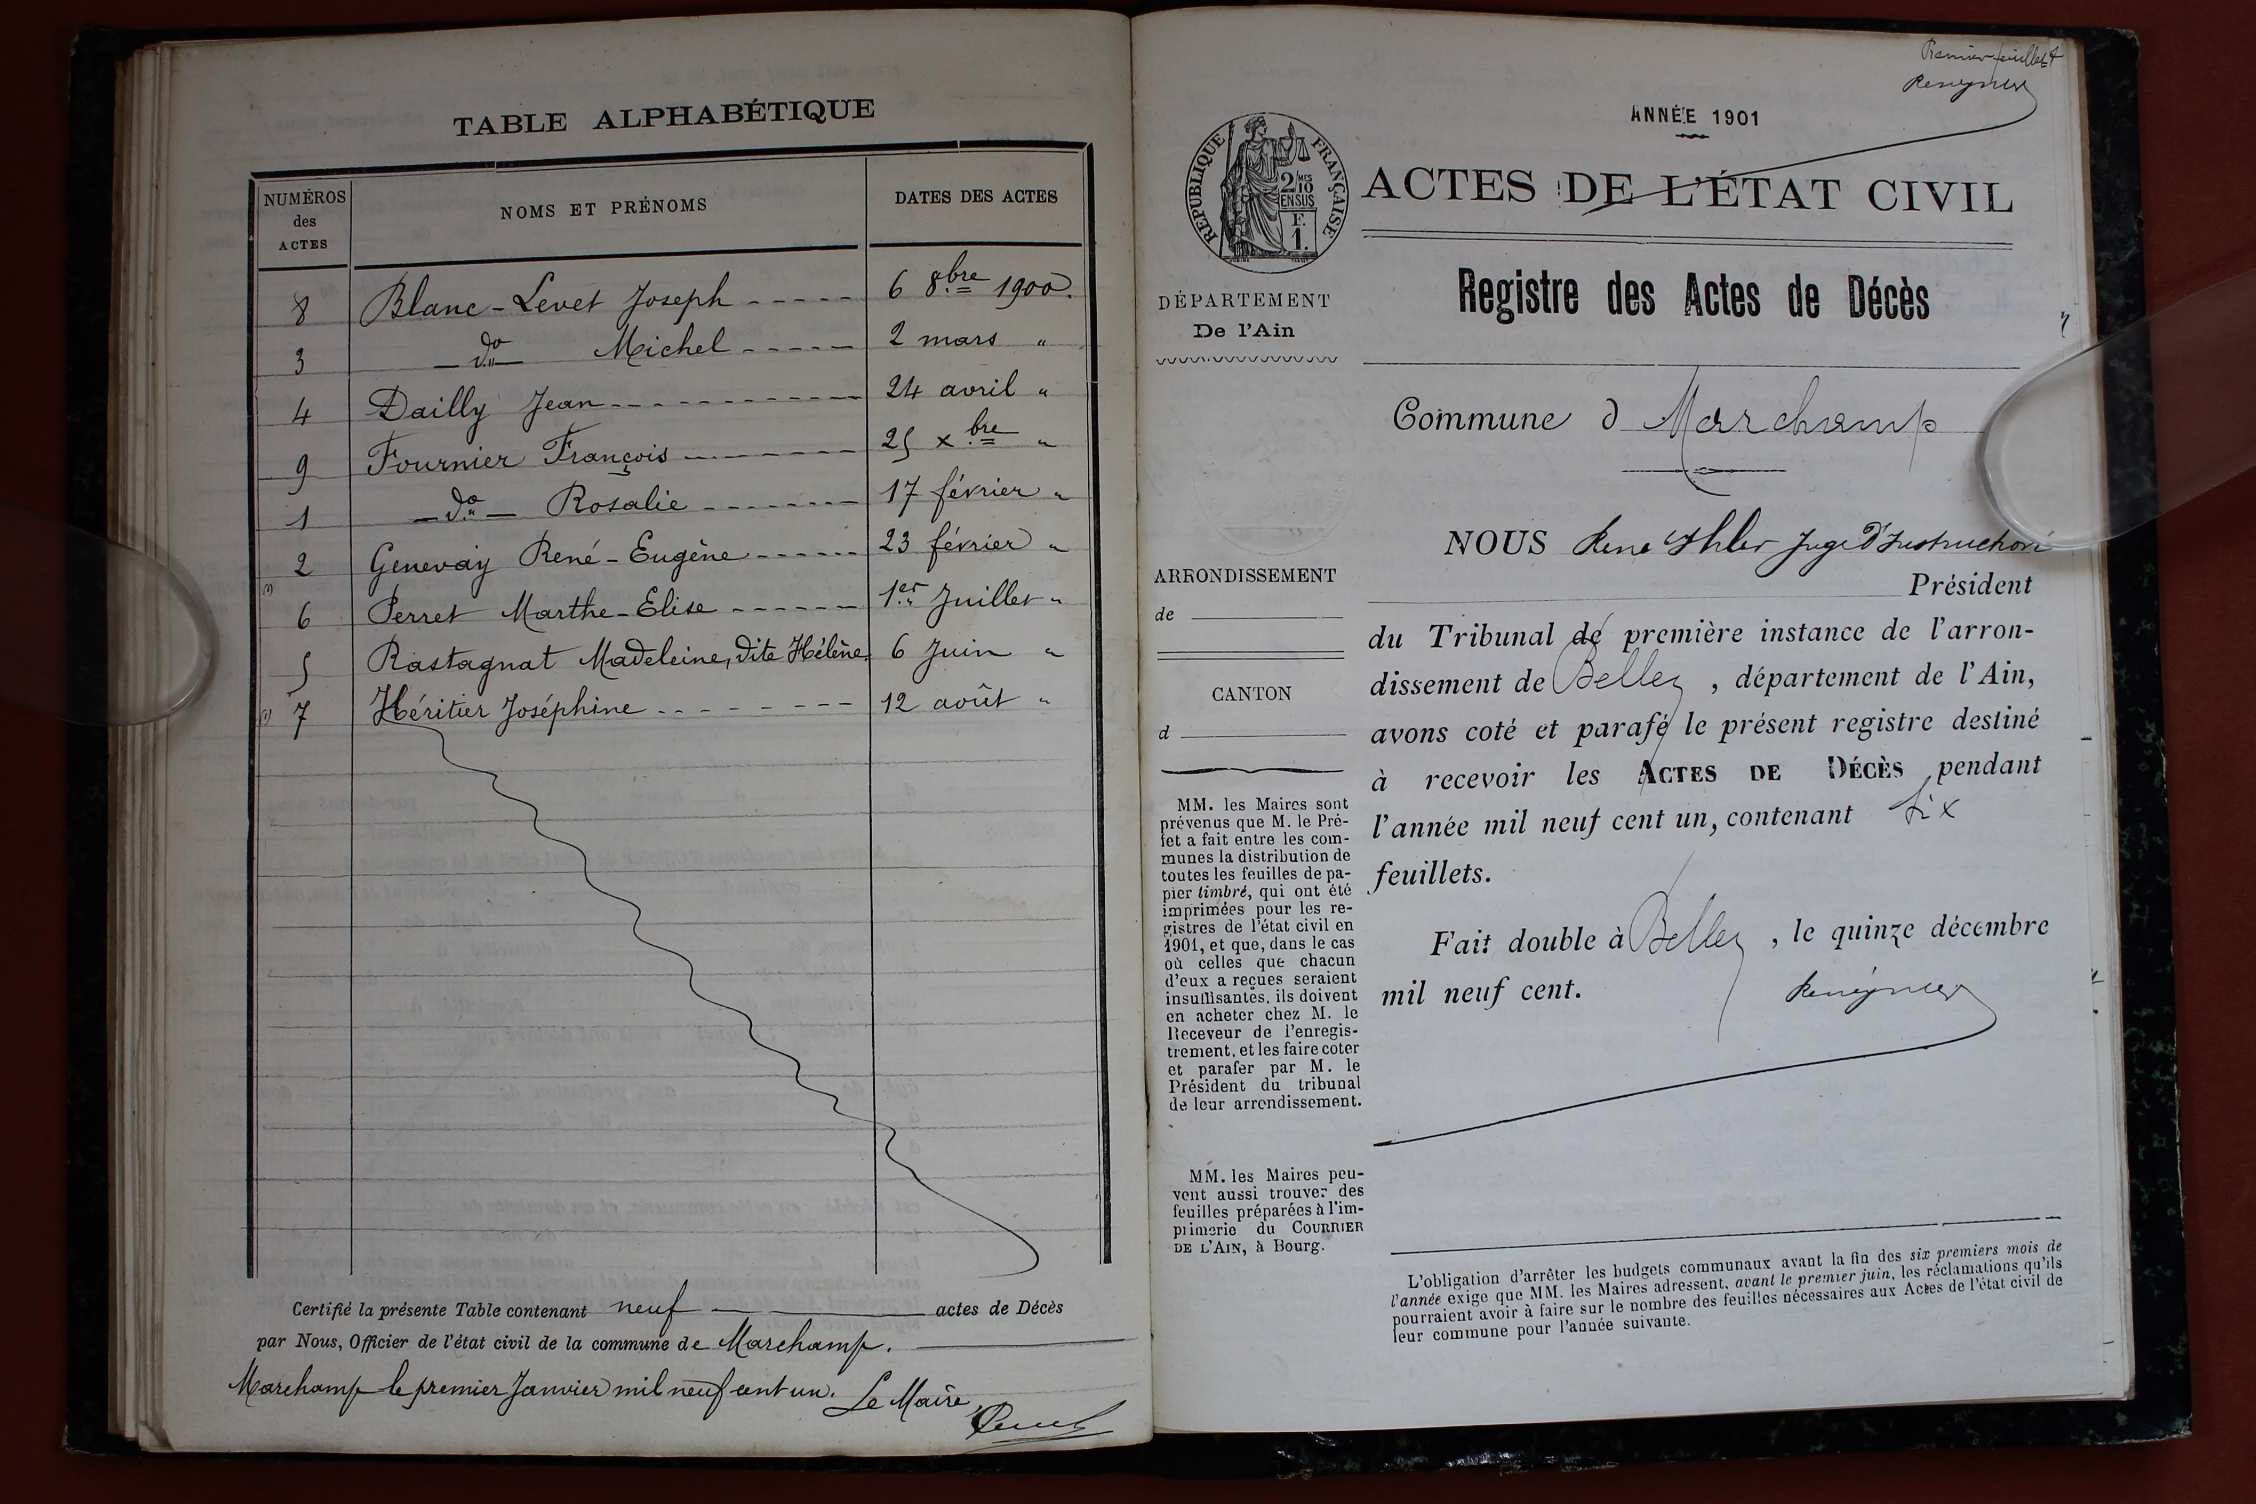 TABLE ALPHABÉTIQUE
NUMÉROS des ACTES NOMS ET PRÉNOMS DATES DES ACTES
8 Blanc-Levet Joseph 6 8bre 1900.
3 do Michel 2 mars "
4 Dailly Jean 24 avril "
9 Fournier François 25 xbre "
1 do Rosalie 17 février "
2 Genevay René-Eugène 23 février "
6 Perret Marthe-Elise 1er Juillet "
5 Rastagnat Madeleine, dite Hélène. 6 Juin "
7 Héritier Joséphine 12 août "
Certifié la présente Table contenant neuf actes de Décès
par Nous, Officier de l'état civil de la commune de Marchamp.
Marchamp le premier Janvier mil neuf cent un. Le Maire,
Premier feuillet
ANNÉE 1901
RÉPUBLIQUE FRANÇAISE
2/10 MES
EN SUS
F.
1.
ACTES DE L'ÉTAT CIVIL
DÉPARTEMENT
De l'Ain
Registre des Actes de Décès
Commune d Marchamp
ARRONDISSEMENT
de
CANTON
d
MM. les Maires sont
prévenus que M. le Pré-
fet a fait entre les com-
munes la distribution de
toutes les feuilles de pa-
pier timbré, qui ont été
imprimées pour les re-
gistres de l'état civil en
1901, et que, dans le cas
où celles que chacun
d'eux a reçues seraient
insuffisantes, ils doivent
en acheter chez M. le
Receveur de l'enregis-
trement, et les faire coter
et parafer par M. le
Président du tribunal
de leur arrondissement.
MM. les Maires peu-
vent aussi trouver des
feuilles préparées à l'im-
primerie du COURRIER
DE L'AIN, à Bourg.
NOUS René Ihler Juge d'Instruction
Président
du Tribunal de première instance de l'arron-
dissement de Belley, département de l'Ain,
avons coté et parafé le présent registre destiné
à recevoir les ACTES DE DÉCÈS pendant
l'année mil neuf cent un, contenant six
feuillets.
Fait double à Belley, le quinze décembre
mil neuf cent.
L'obligation d'arrêter les budgets communaux avant la fin des six premiers mois de
l'année exige que MM. les Maires adressent, avant le premier juin, les réclamations qu'ils
pourraient avoir à faire sur le nombre des feuilles nécessaires aux Actes de l'état civil de
leur commune pour l'année suivante.